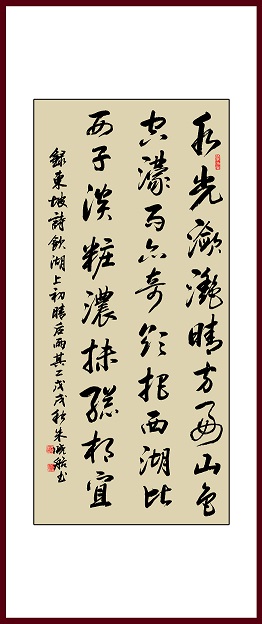 水光瀲灩晴方好山色
空濛雨亦奇欲把西湖比
西子淡粧濃抹總相宜
錄東坡詩飲湖上初晴后雨其二戊戌秋朱书